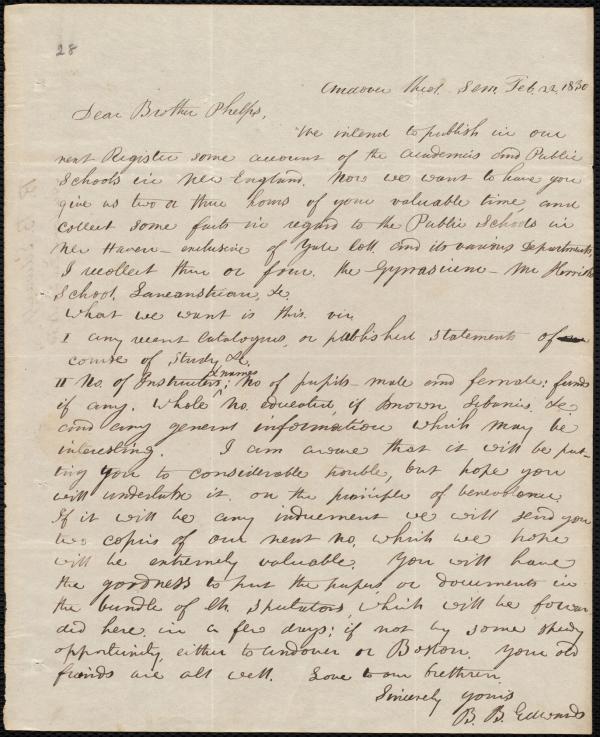 28
Andover Theol. Sem. Feb. 22, 1830
Dear Brother Phelps,
We intend to publish in our
next Register some account of the Academies and Public
Schools in New England. Now we want to have you
give us two or three hours of your valuable time, and
collect some facts in regard to the Public Schools in
New Haven – exclusive of Yale Coll. and its various departments.
I recollect three or four, the Gymnasium – Mr Herrick's
School, Lancastrian, &c.
What we want is this. viz.
I any recent Catalogues, or published statements of
course of study &c.
& names
II No. of Instructers; No of pupils – male and female; funds
if any. Whole No. educated, if known, Libraries, &c.
and any general information which may be
interesting. I am aware that it will be put-
ting you to considerable trouble, but hope you
will undertake it, on the principle of benevolence.
If it will be any inducement we will send you
two copies of our next no. which we hope
will be extremely valuable. You will have
the goodness to put the papers, or documents in
the bundle of Ch. Spectators, which will be forwar
ded here in a few days; if not by some speedy
opportunity, either to Andover or Boston. Your old
friends are all well. Love to our brethren.
Sincerely yours
B. B. Edwards